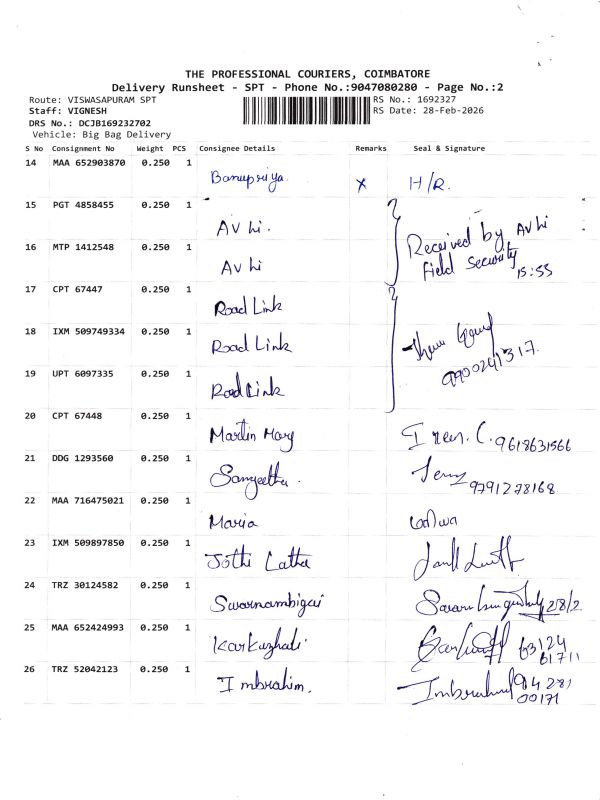 THE PROFESSIONAL COURIERS, COIMBATORE
Delivery Runsheet - SPT - Phone No.:9047080280 - Page No.:2
Route: VISWASAPURAM SPT
RS No.: 1692327
Staff: VIGNESH
RS Date: 28-Feb-2026
DRS No.: DCJB169232702
Vehicle: Big Bag Delivery
S No Consignment No Weight PCS Consignee Details Remarks Seal & Signature
14 MAA 652903870 0.250 1 Banupriya. X H/R.
15 PGT 4858455 0.250 1 AVhi.
Received by AVhi
16 MTP 1412548 0.250 1 AVhi
Field Security
15:55
17 CPT 67447 0.250 1 Road Link
18 IXM 509749334 0.250 1 Road Link
9900241317.
19 UPT 6097335 0.250 1 Road Link
20 CPT 67448 0.250 1 Martin Mary 9618631566
21 DDG 1293560 0.250 1 Sangeetha. 9791278168
22 MAA 716475021 0.250 1 Maria
23 IXM 509897850 0.250 1 Jothi Latha
24 TRZ 30124582 0.250 1 Swarnambigai 28/2
25 MAA 652424993 0.250 1 Karkuzhali 63124
61711
26 TRZ 52042123 0.250 1 Imbrahim. 94281
00171